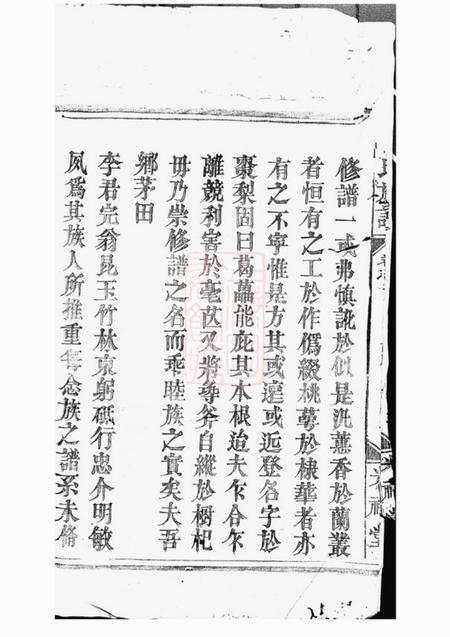 修譜一或弗慎訛於似是汎蕙香於蘭叢
者恒有之工於作僞綴桃萼於棣華者亦
有之不寧惟是方其或遠或近登名字於
棗梨固曰葛藟能庇其本根迨夫乍合乍
離競利害於毫芒又將尋斧自縱於樹杞
毋乃崇修譜之名而乖睦族之實矣夫吾
鄉茅田
李君完翁昆玉竹林東躬砥行忠介明敏
夙爲其族人所推重每念族之譜系未脩